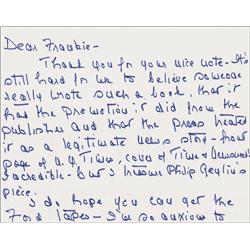 Dear Frankie -
Thank you for your nice note - It's
still hard for me to believe someone
really wrote such a book, that it
had the promotion it did from the
publisher and that the press treated
it as a legitimate news story - front
page of N.Y. Times, cover of Time & Newsweek
incredible - but I Philip Geyelin's
piece.
I do hope you can get the
Ford tapes - I'm so anxious to